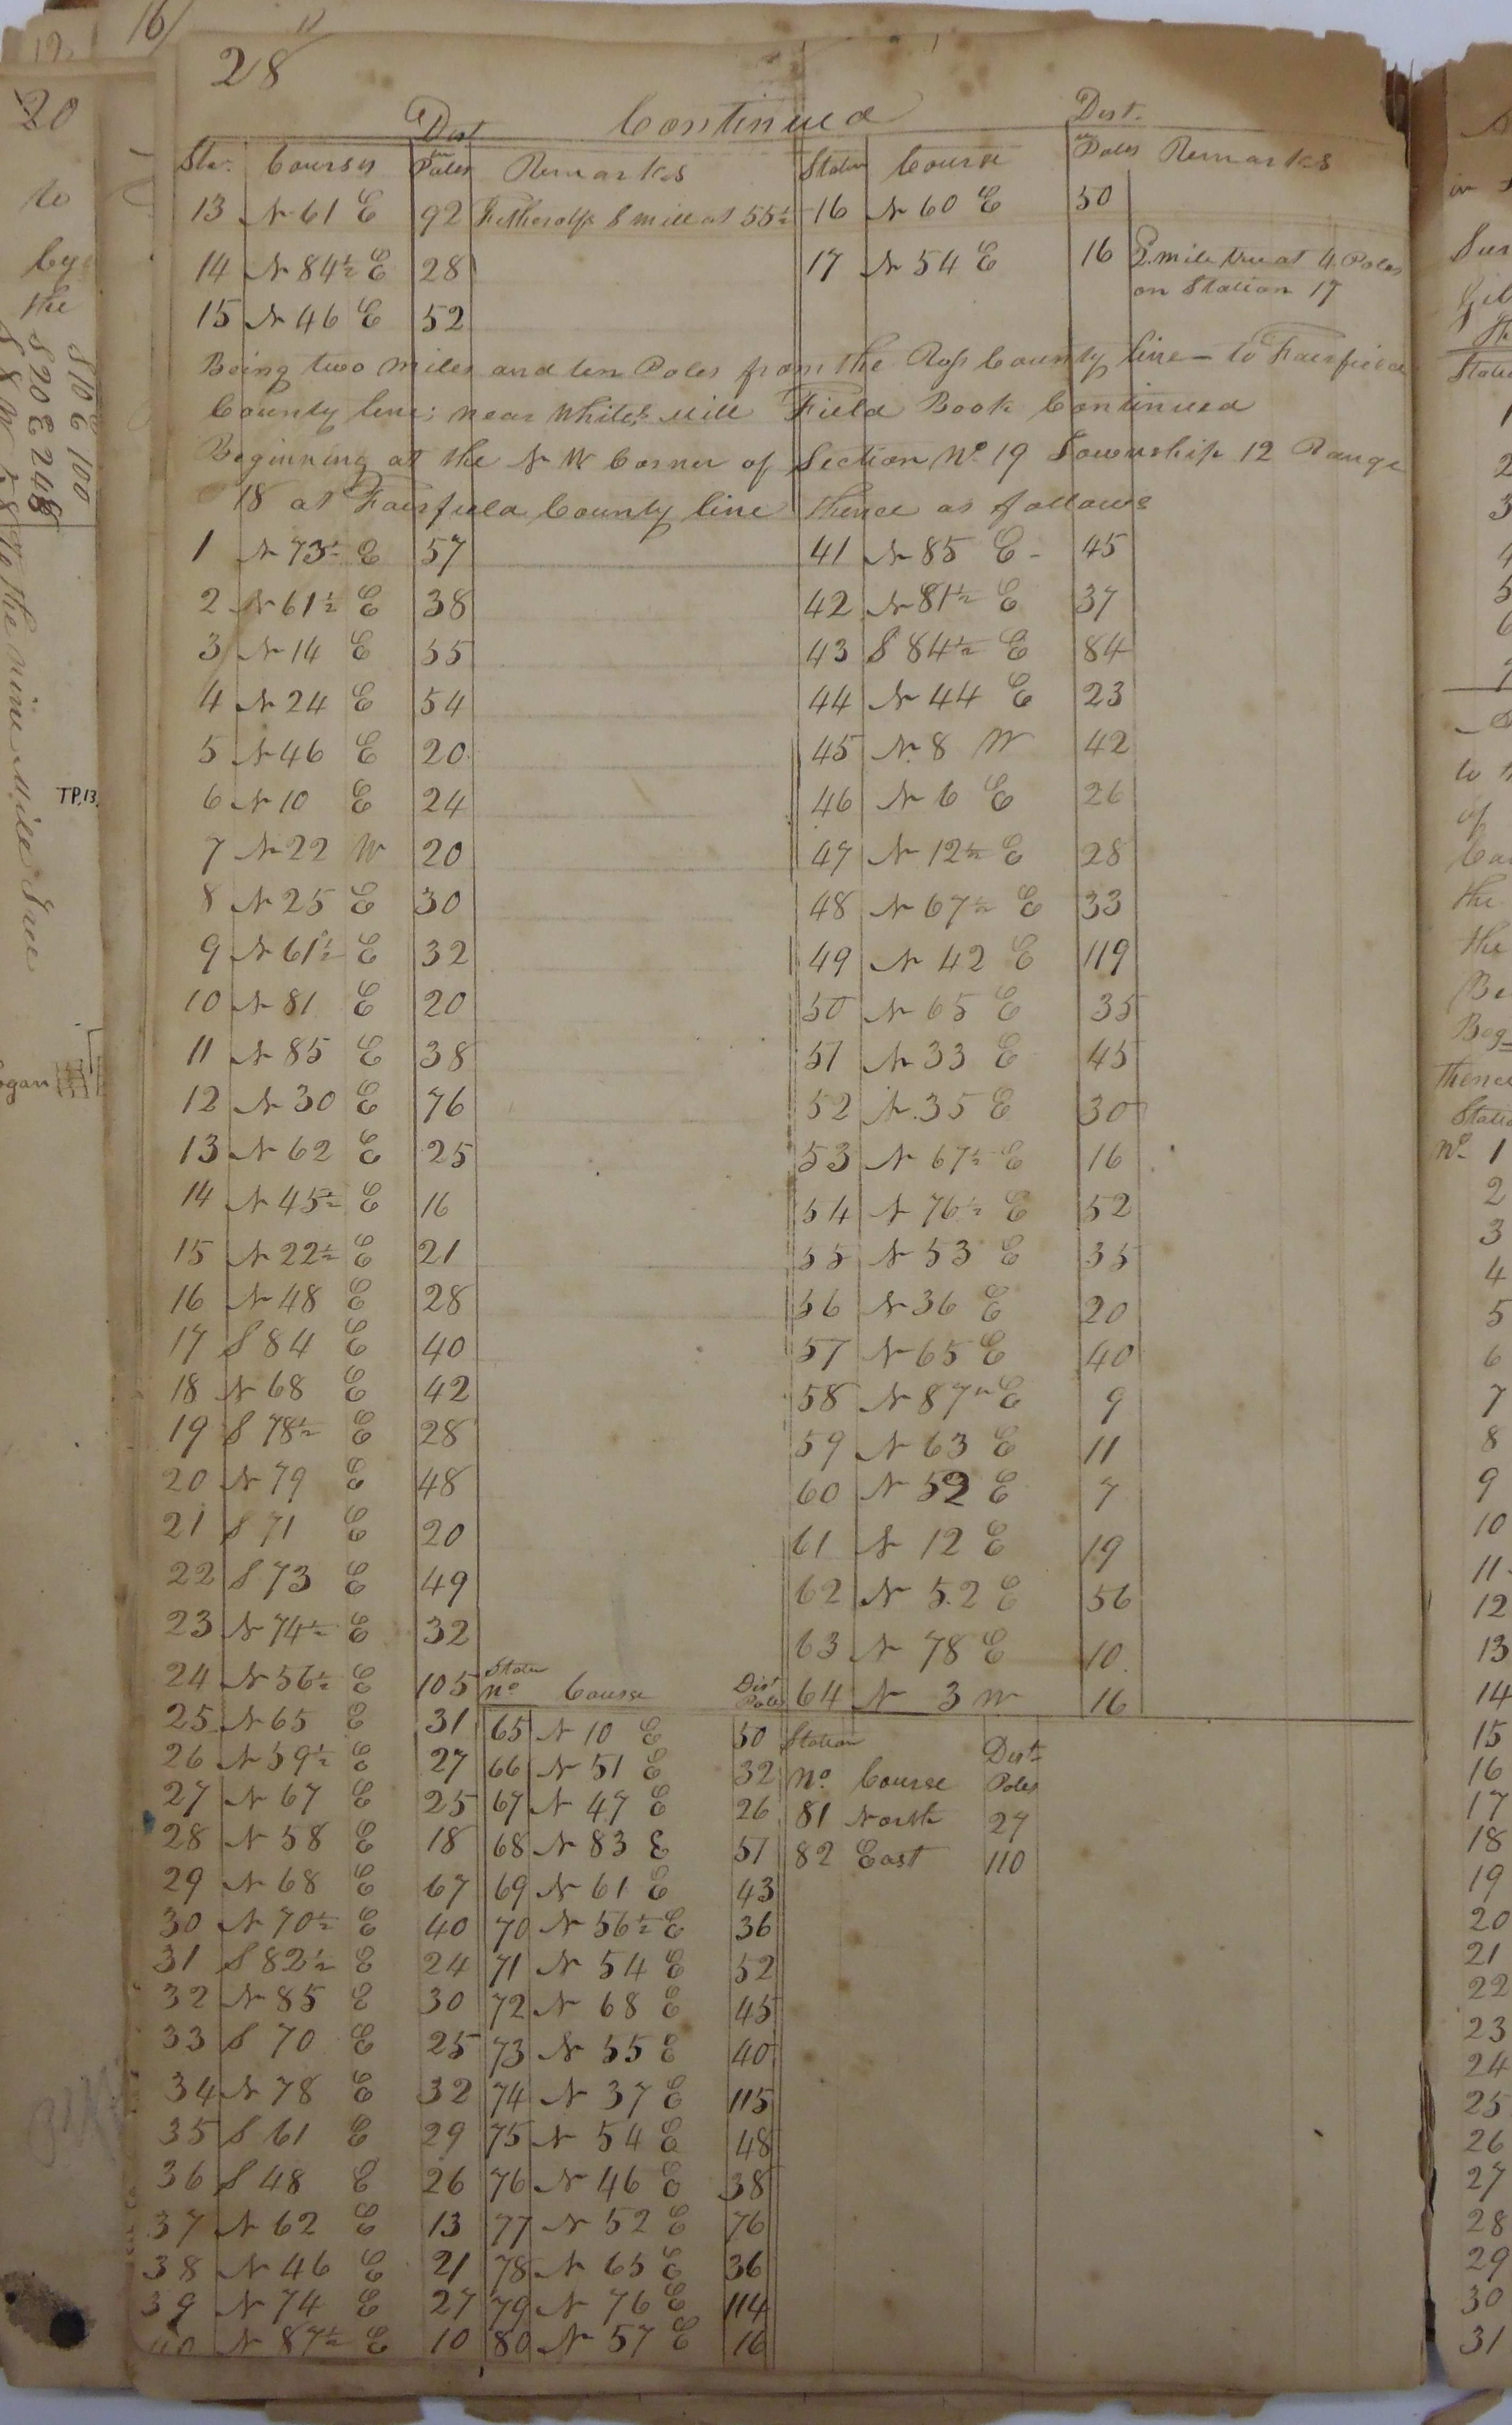 28
Continued
Sta. Courses Dist in Poles Remarks
13 N 61 E 92 S mill at 55½
14 N 84½ E 28
15 N 46 E 52
Station Course Dist. in Poles Remarks
16 N 60 E 50
17 N 54 E 16 2 mile tree at 4 Poles
on Station 17
Being two miles and ten Poles from the Ross County line to Fairfield
County line; near Whites Mill Field Book Continued
Beginning at the N W Corner of Section No. 19 Township 12 Range
18 at Fairfield County line thence as follows
1 N 73½ E 57
2 N 61½ E 38
3 N 14 E 55
4 N 24 E 54
5 N 46 E 20
6 N 10 E 24
7 N 22 W 20
8 N 25 E 30
9 N 61½ E 32
10 N 81 E 20
11 N 85 E 38
12 N 30 E 76
13 N 62 E 25
14 N 45½ E 16
15 N 22½ E 21
16 N 48 E 28
17 S 84 E 40
18 N 68 E 42
19 S 78½ E 28
20 N 79 E 48
21 S 71 E 20
22 S 73 E 49
23 N 74½ E 32
24 N 56½ E 105
25 N 65 E 31
26 N 59½ E 27
27 N 67 E 25
28 N 58 E 18
29 N 68 E 67
30 N 70½ E 40
31 S 82½ E 24
32 N 85 E 30
33 S 70 E 25
34 N 78 E 32
35 S 61 E 29
36 S 48 E 26
37 N 62 E 13
38 N 46 E 21
39 N 74 E 27
40 N 87½ E 10
41 N 85 E 45
42 N 81½ E 37
43 S 84½ E 84
44 N 44 E 23
45 N. 8 W 42
46 N 6 E 26
47 N 12½ E 28
48 N 67½ E 33
49 N 42 E 119
50 N 65 E 35
51 N 33 E 45
52 N. 35 E 30
53 N 67½ E 16
54 N 76½ E 52
55 N 53 E 35
56 N 36 E 20
57 N 65 E 40
58 N 87 E 9
59 N 63 E 11
60 N 52 E 7
61 N 12 E 19
62 N 52 E 56
63 N 78 E 10
64 N 3 W 16
Station No Course Dist Poles
65 N 10 E 50
66 N 51 E 32
67 N 47 E 26
68 N 83 E 51
69 N 61 E 43
70 N 56½ E 36
71 N 54 E 52
72 N 68 E 45
73 N 55 E 40
74 N 37 E 115
75 N 54 E 48
76 N 46 E 38
77 N 52 E 76
78 N 65 E 36
79 N 76 E 114
80 N 57 E 16
Station
No. Course Dist. Poles
81 North 27
82 East 110
16
20
to
by
the
S 10 E 100
S 20 E 248
to the nine Mile Tree
TP.13
ogan
in
of
the
the
Be
Beg
thence
No. 1
2
3
4
5
6
7
8
9
10
11
12
13
14
15
16
17
18
19
20
21
22
23
24
25
26
27
28
29
30
31